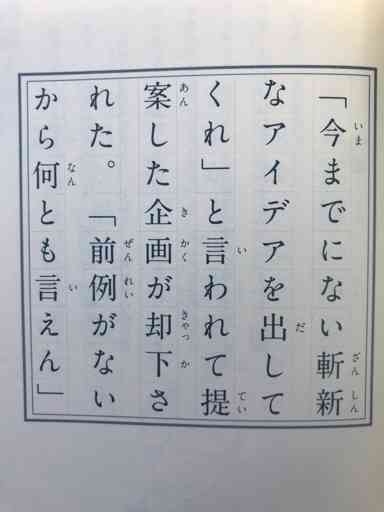 「今までにない斬新
なアイデアを出して
くれ」と言われて提
案した企画が却下さ
れた。「前例がない
から何とも言えん」